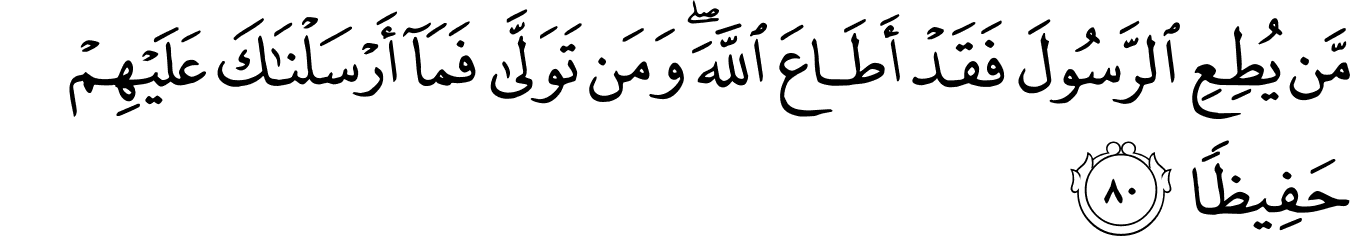 مَّن يُطِعِ ٱلرَّسُولَ فَقَدۡ أَطَاعَ ٱللَّهَۖ وَمَن تَوَلَّىٰ فَمَآ أَرۡسَلۡنَٰكَ عَلَيۡهِمۡ
حَفِيظٗا ٨٠